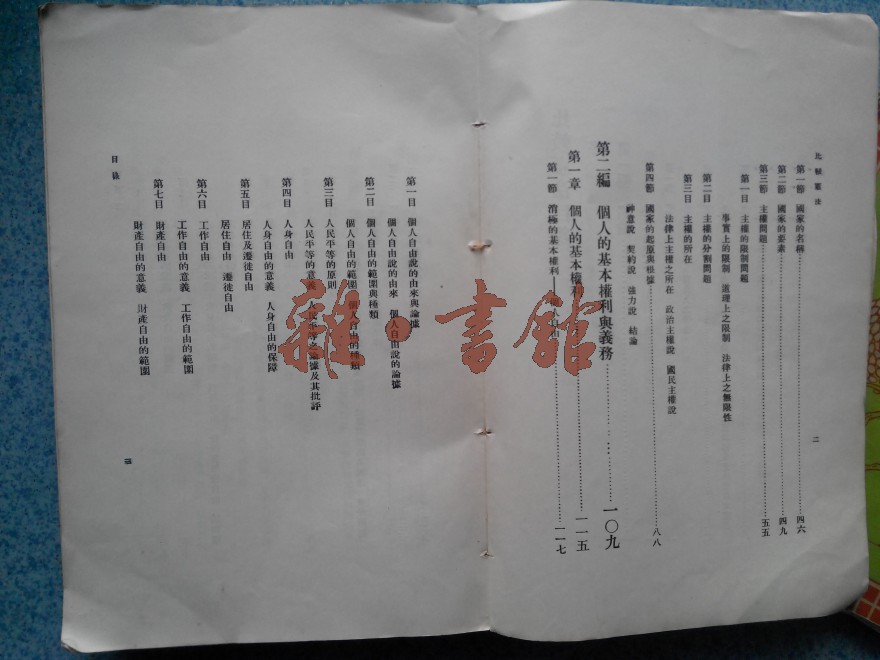 比較憲法
二
第一節 國家的名稱……四六
第二節 國家的要素……四九
第三節 主權問題……五五
第一目 主權的限制問題
事實上的限制 道理上之限制 法律上之無限性
第二目 主權的分割問題
第三目 主權的所在
法律上主權之所在 政治主權說 國民主權說
第四節 國家的起原與根據……八八
神意說 契約說 強力說 結論
第二編 個人的基本權利與義務……一〇九
第一章 個人的基本權……一一五
第一節 消極的基本權利——個人自由……一一七
第一目 個人自由說的由來與論據
個人自由說的由來 個人自由說的論據
第二目 個人自由的範圍與種類
個人自由的範圍 個人自由的種類
第三目 人民平等的原則
人民平等的意義 人民平等的論據及其批評
第四目 人身自由
人身自由的意義 人身自由的保障
第五目 居住及遷徙自由
居住自由 遷徙自由
第六目 工作自由
工作自由的意義 工作自由的範圍
第七目 財產自由
財產自由的意義 財產自由的範圍
目錄
三
雜·書館